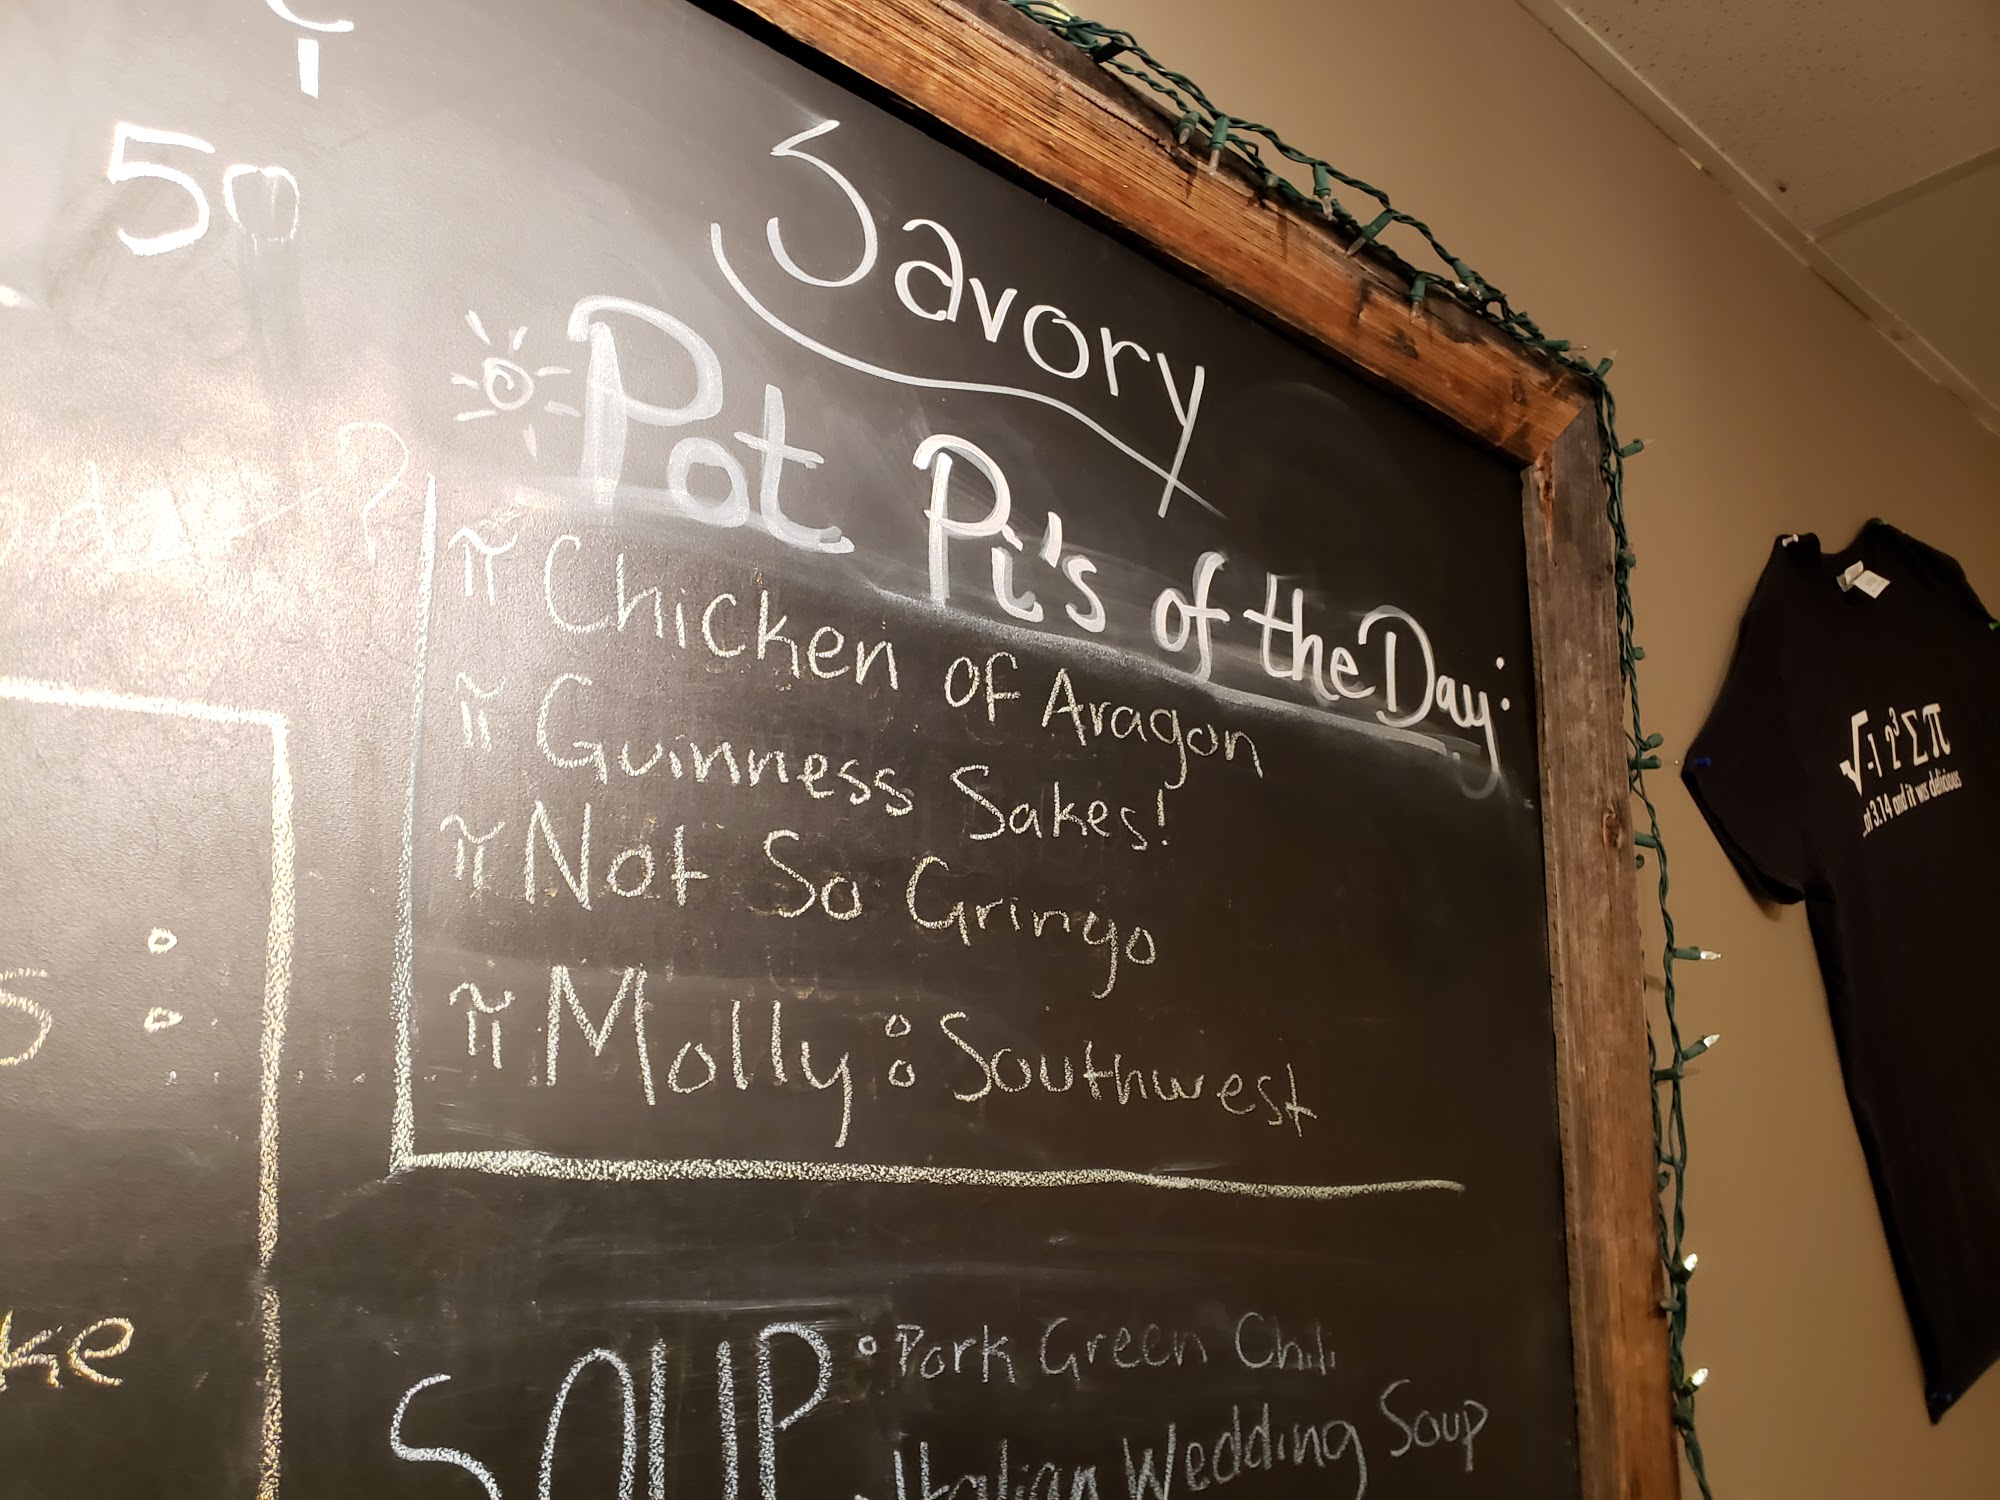 50
Savory
Pot Pi's of the Day:
π Chicken of Aragon
π Guinness Sakes!
π Not So Gringo
π Molly: Southwest
SOUP
Pork Green Chili
Italian Wedding Soup
ke
√-1 2³ Σ π
...at 3.14 and it was delicious